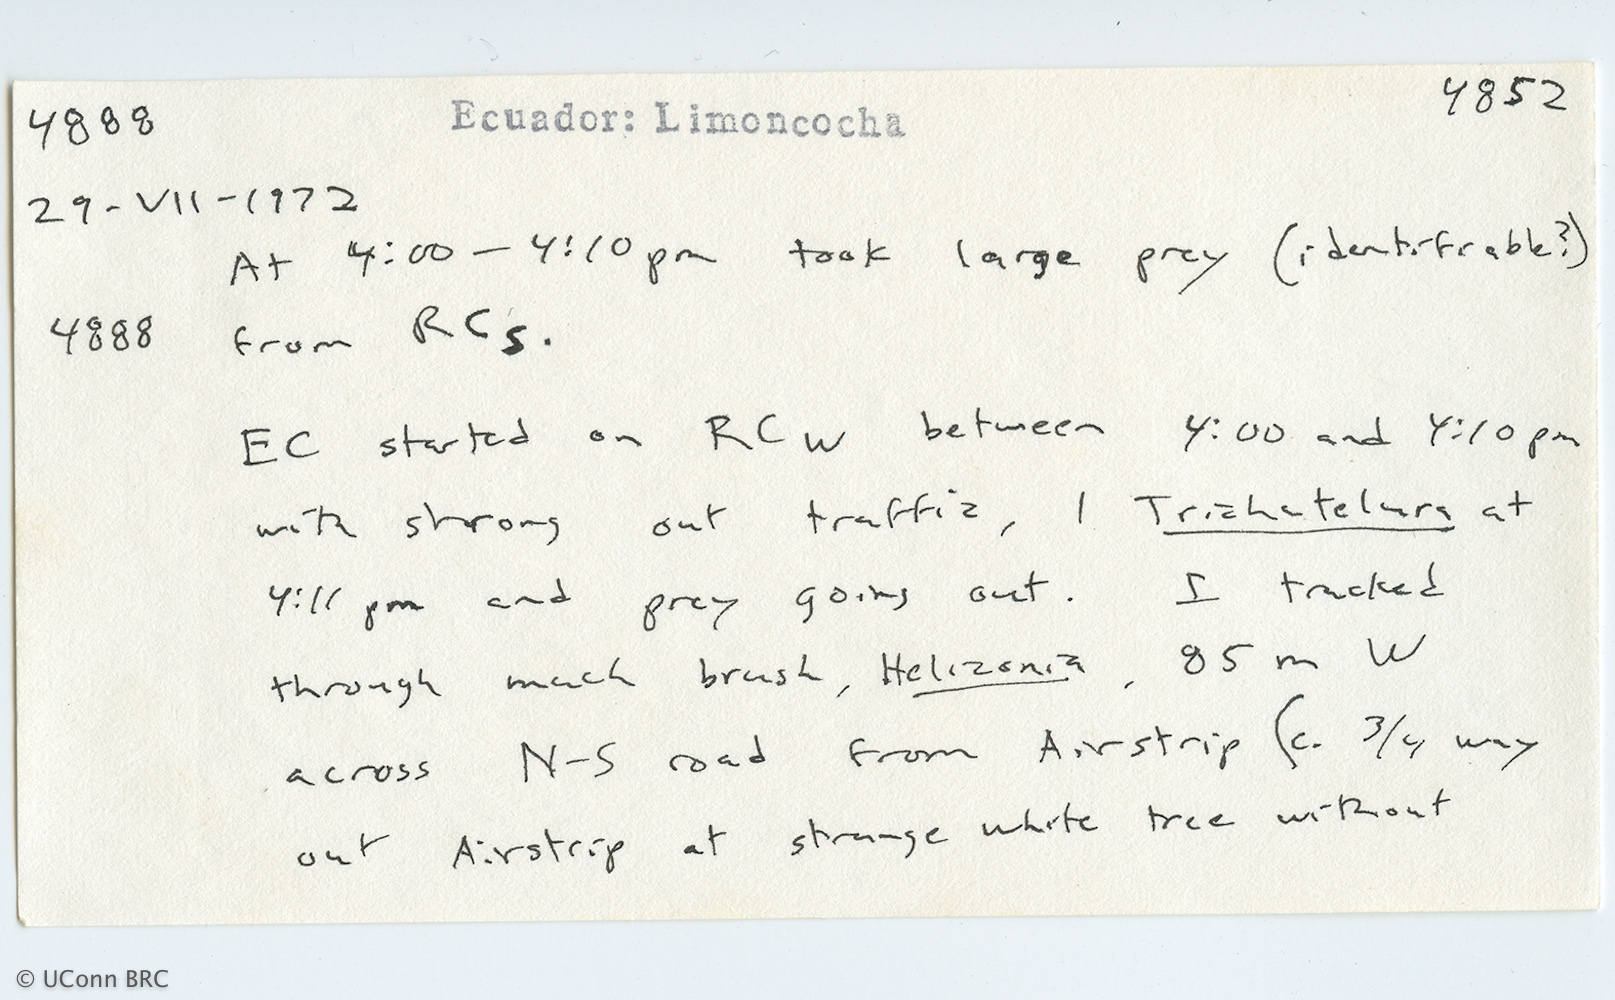 4888 Ecuador: Limoncocha 4852
29-VII-1972
At 4:00 - 4:10 pm took large prey (identifiable?)
4888 from RCs.
EC started on RCW between 4:00 and 4:10 pm
with strong out traffic, 1 Trichatelura at
4:11 pm and prey going out. I tracked
through much brush, Heliconia, 85 m W
across N-S road from Airstrip (c. 3/4 way
out Airstrip at strange white tree without
© UConn BRC